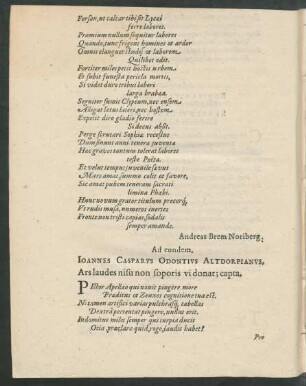 Forsan, ut calcar tibi sit Lycei
ferre labores.
Præmium nullum sequitur labores
Quando, tunc frigent homines et ardor
Omnis elanguet studij et laborem
Quilibet odit.
Fortiter miles petit hostis urbem
Et subit funesta pericla mortis,
Si videt duro tribui labori
larga brabea.
Segniter sumit Clypeum, nec ensem
Alligat letus lateri, nec hostem
Expetit diro gladio ferire
Si decus absit.
Perge scrutari Sophiæ recessus
Dum sinunt anni tenera juventa
Hoc graves tantum tolerat labores
teste Poeta.
Et velut tempus juvenile savus
Mars amat summo colit et favore,
Sic amat pubem teneram sacrati
limina Phœbi.
Hunc novum grater titulum precorq́;
Et rudis musæ, numeros inertes
Fronte non tristi capias, sodalis
semper amande.
Andreas Brem Noriberg;
Ad eundem,
IOANNES CASPARUS ODONTIUS ALTDORPIANUS,
Ars laudes nisu non soporis vi donat; capta,
PIctor Apelleo qui novit pingere more
Praditus et Zeuxis cognitione tua est.
Ni tamen artifici varias pulchrasq́; tabellas
Dextrâ poertentat pingere, nullus erit.
Indomitus miles semper qui turpia ducit
Otia præclaræ quid, rogo, laudis habet?
Pro